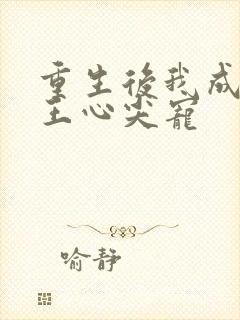 重生後我成
王心尖寵
喻靜